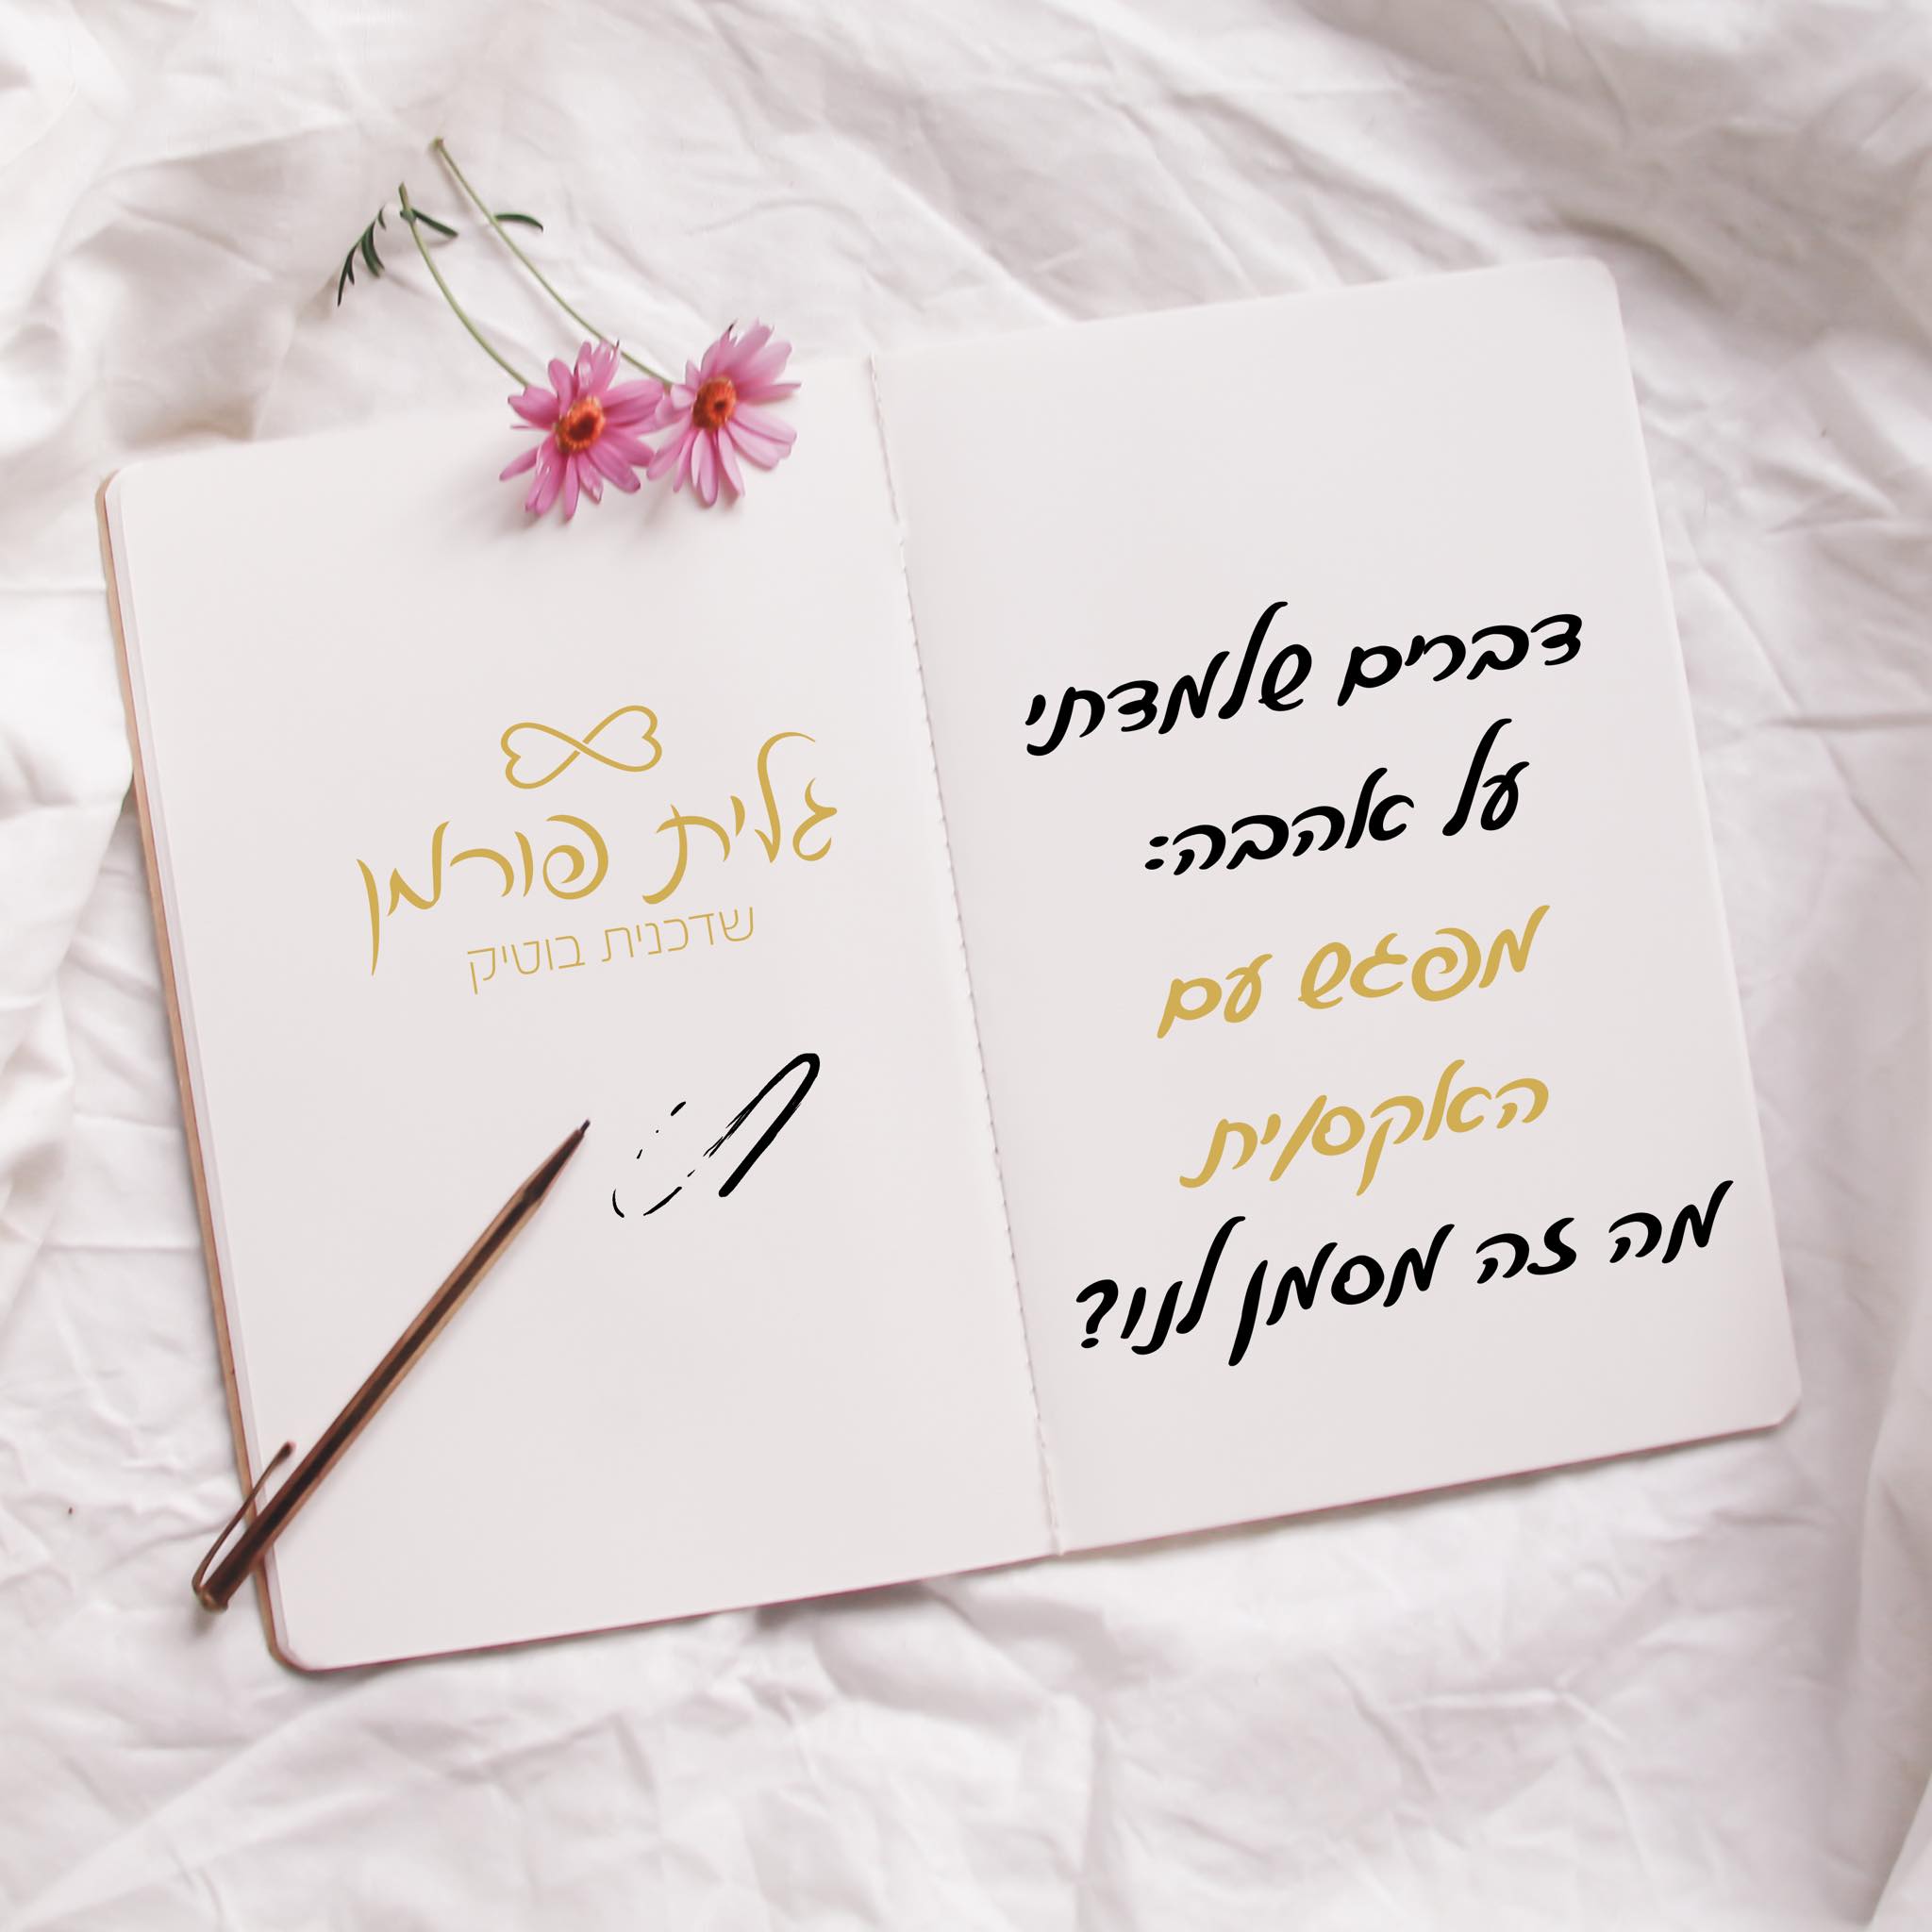 דברים שלמדתי
על אהבה:
מפגש עם
האקסית
מה זה מסמן לנו?
גלית פורמן
שדכנית בוטיק